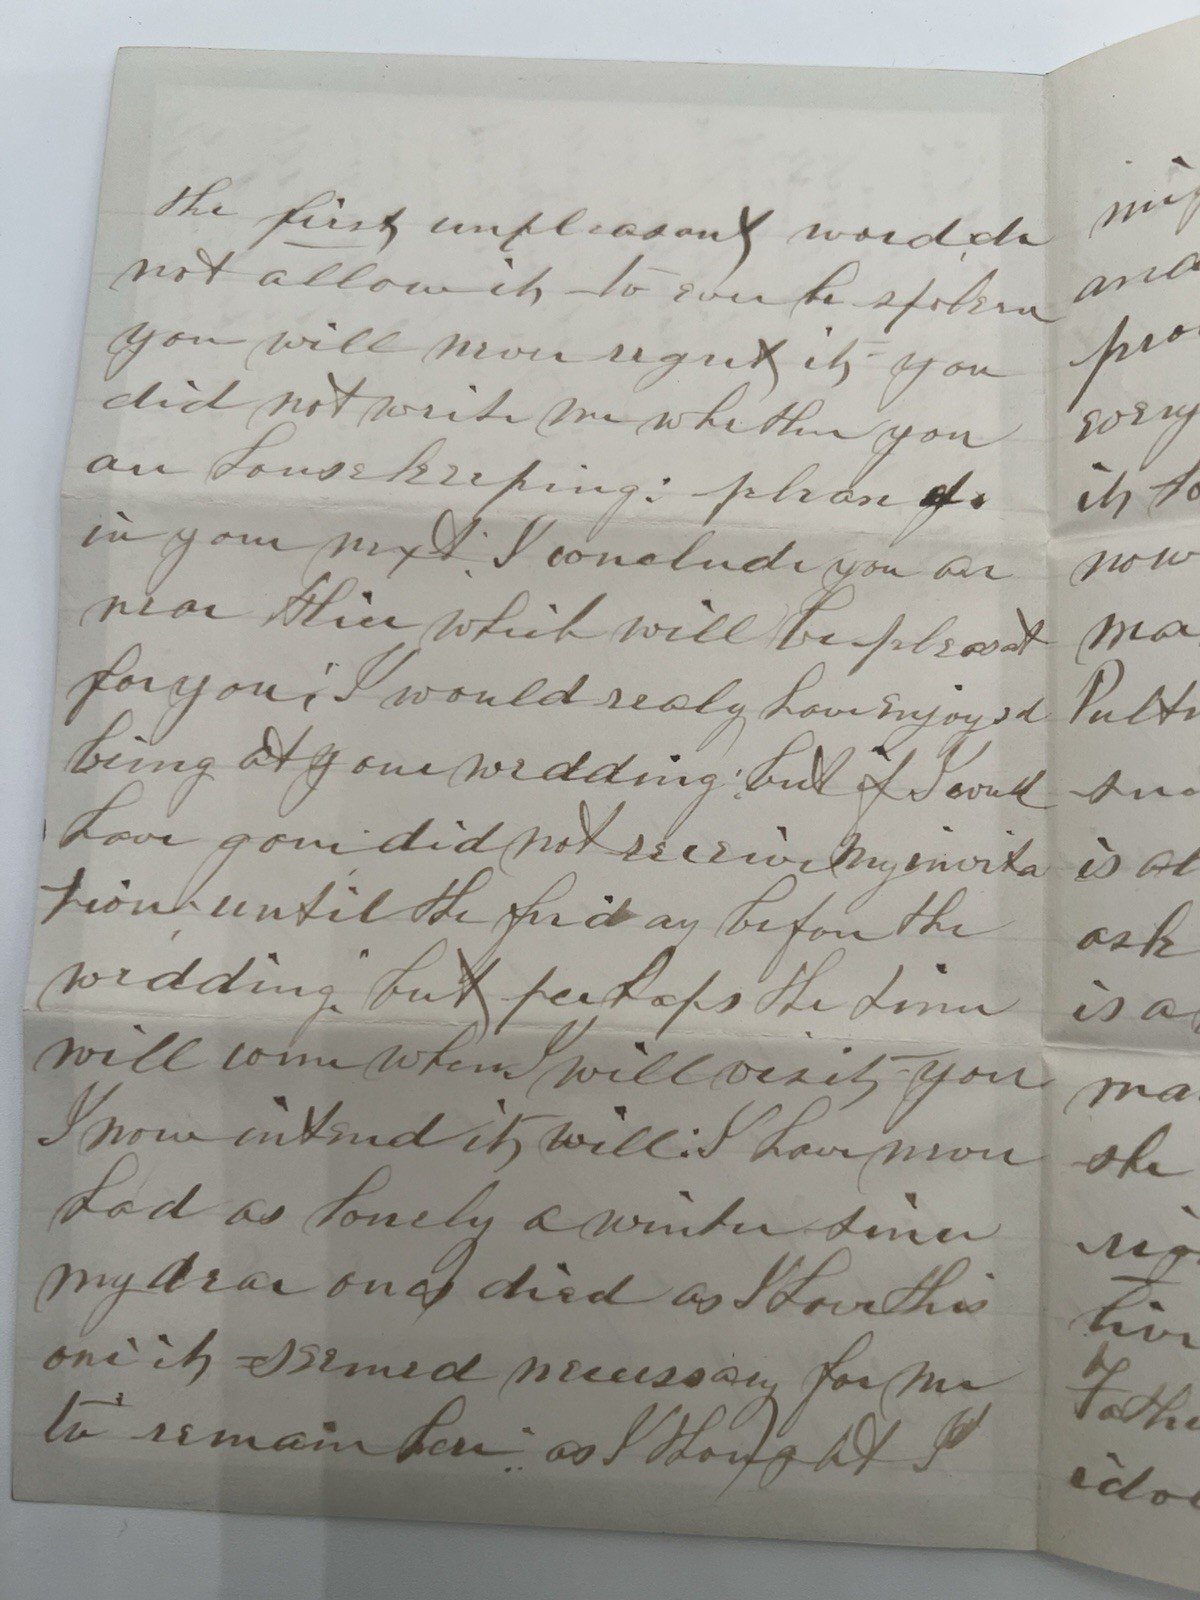 the first unpleasant word, do
not allow it, to ever be spoken
you will never regret it, you
did not write me whether you
are housekeeping: please do
in your next. I conclude you are
near Ihie which will be pleasat
for you; I would realy have enjoyed
being at your wedding: but if I could
have gone did not receive my invita
tion until the friday before the
wedding, but perhaps the time
will come when I will visit, you
I now intend it, will: I have never
had as lonely a winter since
my dear ones died as I have this
one it, seemed necessary for me
to remain here: as I thought I
and
it, to
now
ma
Pult
is at
ask
is a
ma
she